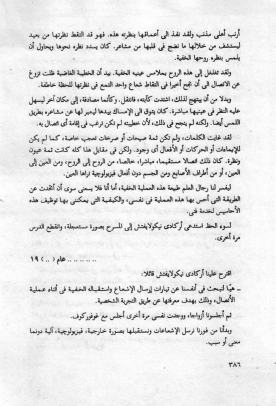 أرنب أهلى مذنب ولقد نفذ الى أعماقها بنظرته هذه. فهو قد التقط نظرتها من بعيد
ليستشف من خلالها ما نضج فى قلبها من مشاعر. كان يسدد نظره نحوها ويحاول أن
يلمس بنظره روحها الخفية.
ولقد تغلغل إلى هذه الروح بملامس عينيه الخفية. بيد أن الخطيبة الغاضبة ظلت تروغ
عن الاتصال الى أن نجح أخيرا فى التقاط شعاع واحد التمع فى نظرتها للحظة خاطفة.
وبدلا من أن يبتهج لذلك، اشتدت كآبته، فانتقل، وكأنما مصادفة، إلى مكان آخر ليسهل
عليه النظر فى عينيها مباشرة. كان يتوق الى الإمساك بيدها ليعبر لها عن مشاعره بطريق
اللمس أيضا. ولكنه لم ينجح فى ذلك، لأن خطيبته لم تكن ترغب فى إقامة أى اتصال به.
لقد غابت الكلمات، ولم تكن ثمة صيحات أو صرخات تعجب خاصة، كما لم يكن
للإيماءات أو الحركات أو الأفعال أى وجود. ولكن فى مقابل هذا كله كانت ثمة عيون
ونظرة. كان ذلك اتصالا مستقيما، مباشرا، خالصا، من الروح إلى الروح، ومن العين إلى
العين، أو من أطراف الأصابع ومن الجسم دون أفعال فيزيولوجية تراها العين.
ليفسر لنا رجال العلم طبيعة هذه العملية الخفية، أما أنا فلا يسعنى سوى أن أتحدث عن
الطريقة التى أحس بها هذه العملية فى نفسى، والكيفية التى يمكننى بها توظيف هذه
الأحاسيس لخدمة فنى.
لسوء الحظ استدعى أركادى نيكولايفتش إلى المسرح بصورة مستعجلة، وانقطع الدرس
مرة أخرى.
......... عام (..) ١٩
اقترح علينا أركادى نيكولايفتش قائلا:
ـ هيا لنبحث فى أنفسنا عن تيارات إرسال الإشعاع واستقباله الخفية فى أثناء عملية
الاتصال، وذلك بهدف معرفتها عن طريق التجربة الشخصية.
ثم أجلسونا أزواجا، ووجدت نفسى مرة أخرى أجلس مع غوفوركوف.
وبدأنا من فورنا نرسل الإشعاعات ونستقبلها بصورة خارجية، فيزيولوجية، آلية دونما
معنى أو سبب.
٣٨٦